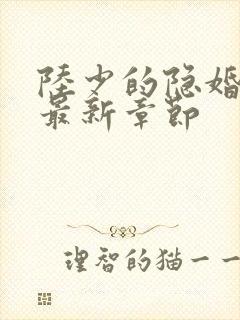 陸少的隐婚
最新章節
理智的猫一一